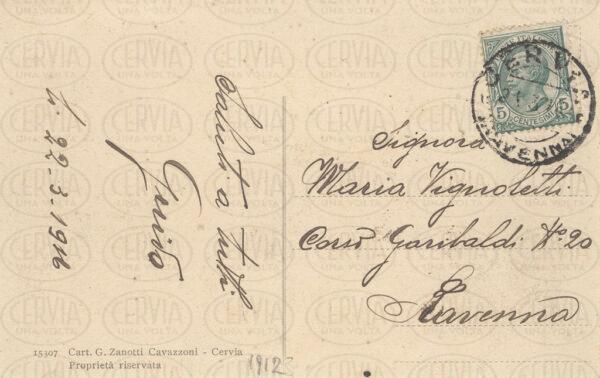 Saluti a tutti.
Guido
lì 22-3-1916
Signora
Maria Vignoletti
Corso Garibaldi N° 20
Ravenna
CERVIA
(RAVENNA)
5 CENTESIMI 5
15307 Cart. G. Zanotti Cavazzoni - Cervia
Proprietà riservata
1912
CERVIA
UNA VOLTA